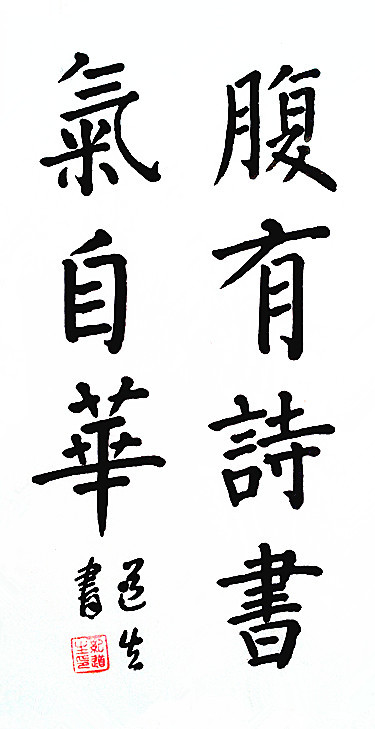 腹有詩書
氣自華
道生
書